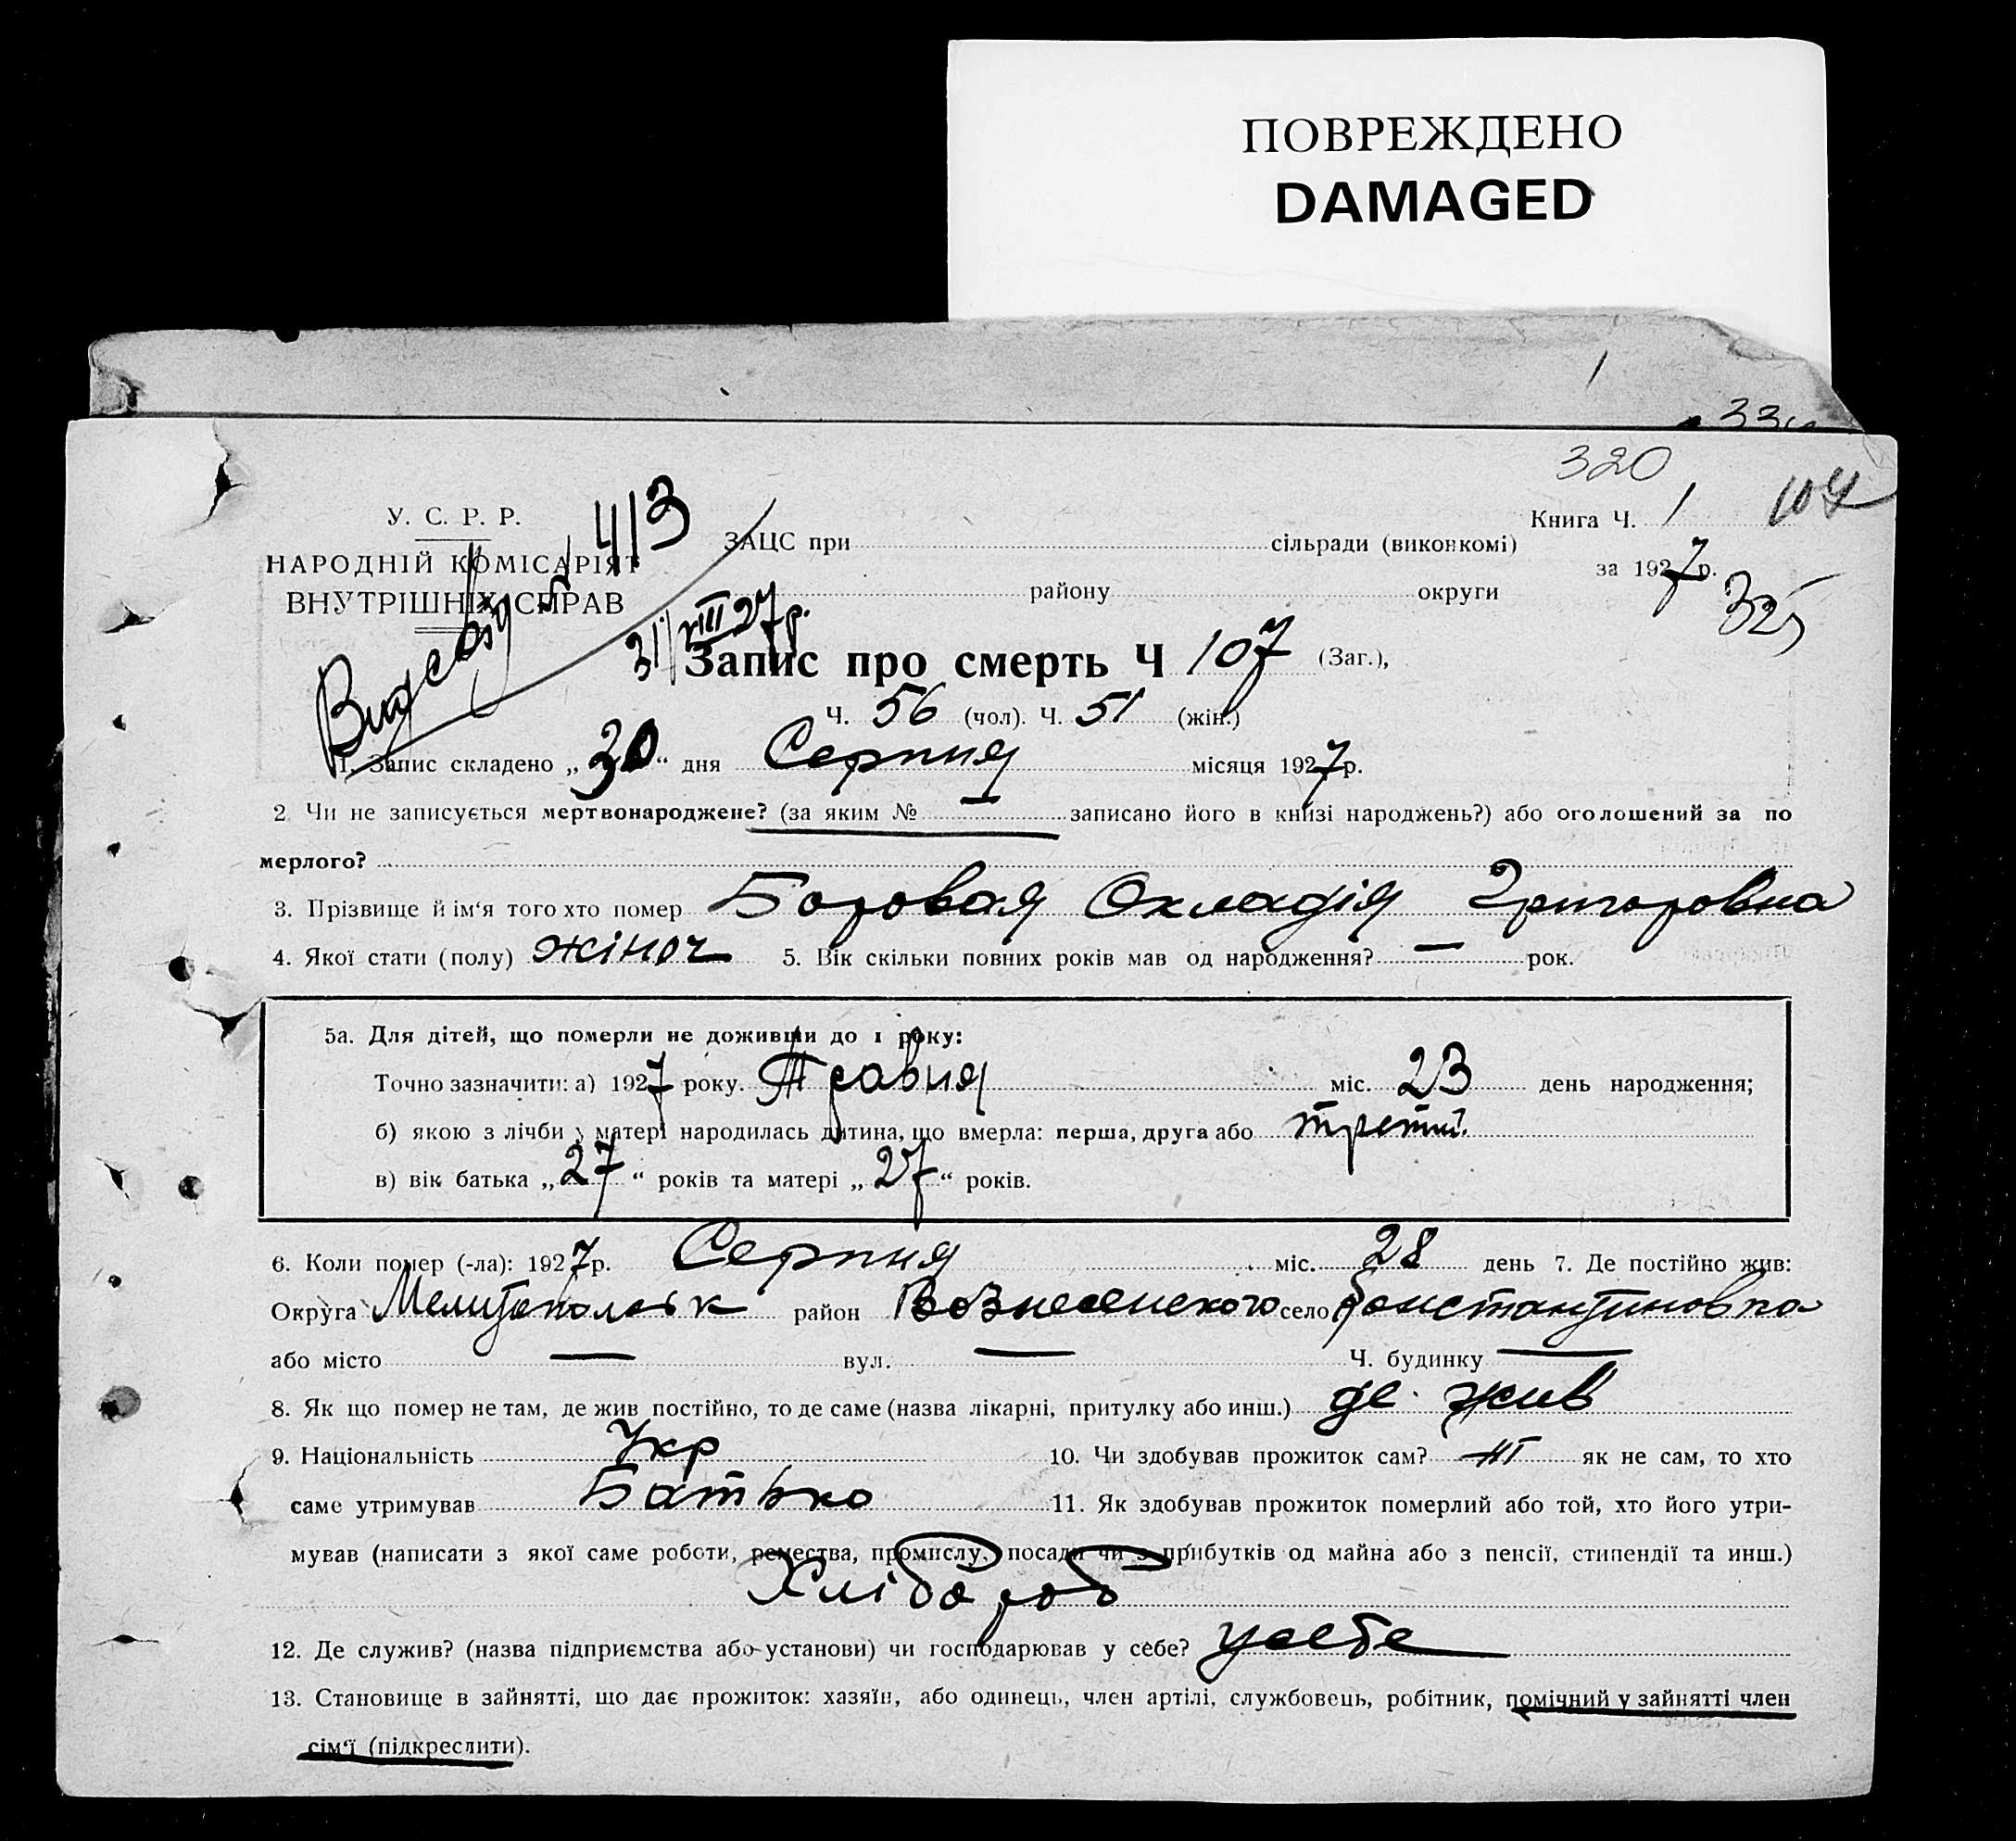 ПОВРЕЖДЕНО
DAMAGED
320
107
У. С. Р. Р.
НАРОДНІЙ КОМІСАРІЯТ
ВНУТРІШНІХ СПРАВ
413
31/VIII 27р.
Книга Ч. 1
ЗАЦС при сільради (виконкомі)
за 1927р.
району округи
325
Запис про смерть Ч 107 (Заг.),
Ч. 56 (чол). Ч. 51 (жін.)
1. Запис складено „30“ дня Серпня місяця 1927р.
2 Чи не записується мертвонароджене? (за яким № — записано його в книзі народжень?) або оголошений за по
мерлого?
3. Прізвище й ім'я того хто помер Боровая Окладія Григоровна
4. Якої стати (полу) жіноч 5. Вік скільки повних років мав од народження? — рок.
5а. Для дітей, що померли не доживши до 1 року:
Точно зазначити: а) 1927 року. Травня міс. 23 день народження;
б) якою з лічби у матері народилась дитина, що вмерла: перша, друга або третій.
в) вік батька „27“ років та матері „27“ років.
6. Коли помер (-ла): 1927р. Серпня міс. 28 день 7. Де постійно жив:
Округа Мелитопольськ район Вознесенского село Константиновка
або місто — вул. — Ч. будинку —
8. Як що помер не там, де жив постійно, то де саме (назва лікарні, притулку або инш.) де жив
9. Національність Укр 10. Чи здобував прожиток сам? ні як не сам, то хто
саме утримував Батько 11. Як здобував прожиток померлий або той, хто його утри-
мував (написати з якої саме роботи, ремества, промислу, посади чи з прибутків од майна або з пенсії, стипендії та инш.)
Хлібороб
12. Де служив? (назва підприємства або установи) чи господарював у себе? у себе
13. Становище в зайнятті, що дає прожиток: хазяїн, або одинець, член артілі, службовець, робітник, помічний у зайнятті член
сім'ї (підкреслити).